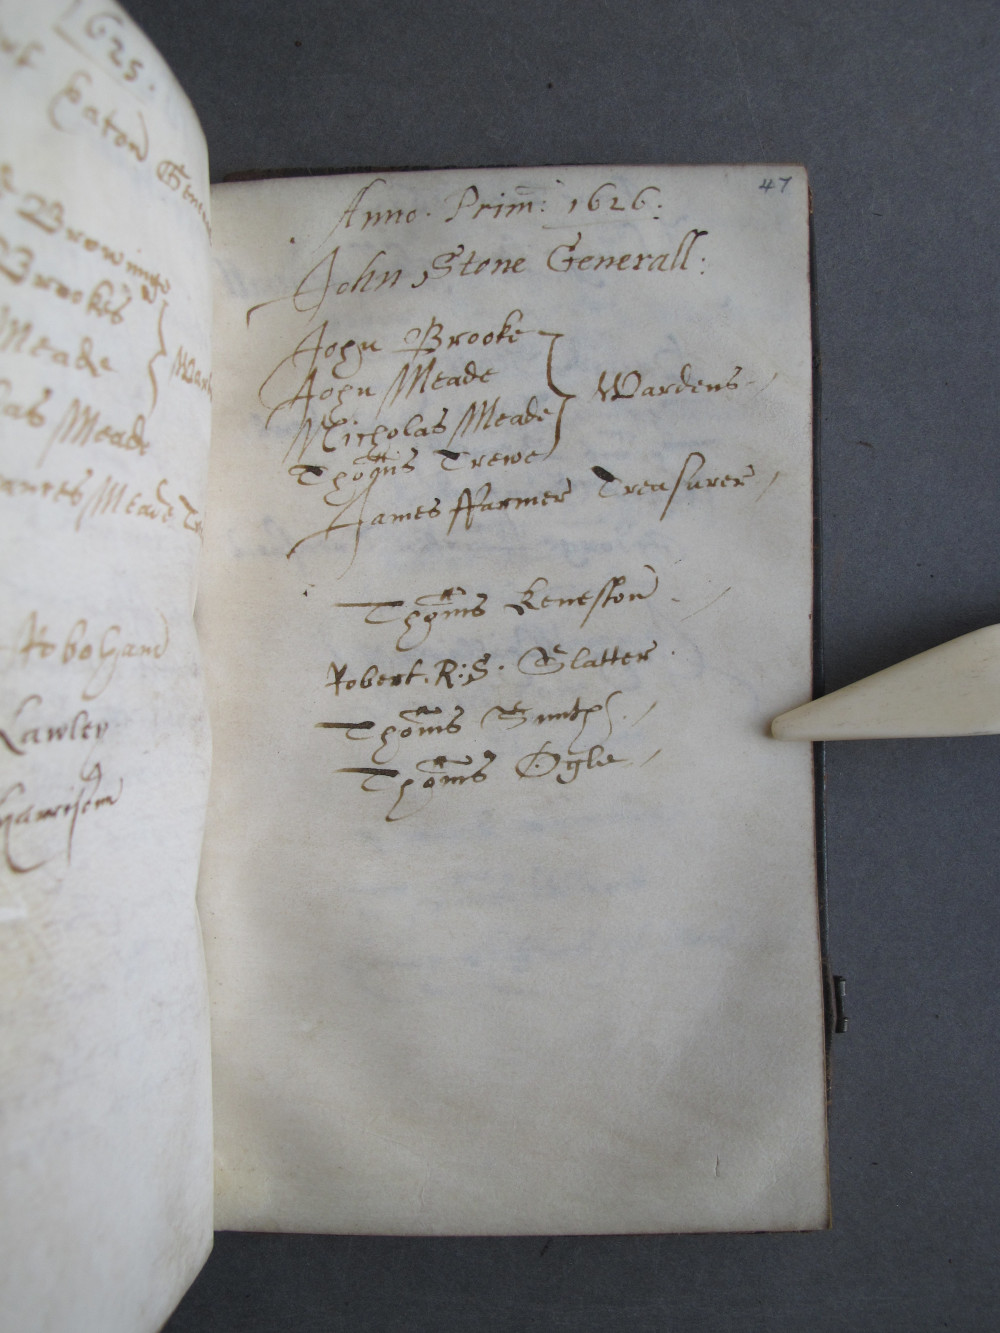 1625.
Eaton Gener
Browninge
Brookes
Meade
Ward
las Meade
Meade Tr
Lawley
Harrison
47
Anno. Prim: 1626:
John Stone Generall:
John Brooke
John Meade
Wardens
Nicholas Meade
Thoms Trewe
James ffarmer Treasurer
Thoms Keneston
Robert. R:S. Slatter
Thoms Smith
Thoms Ogle